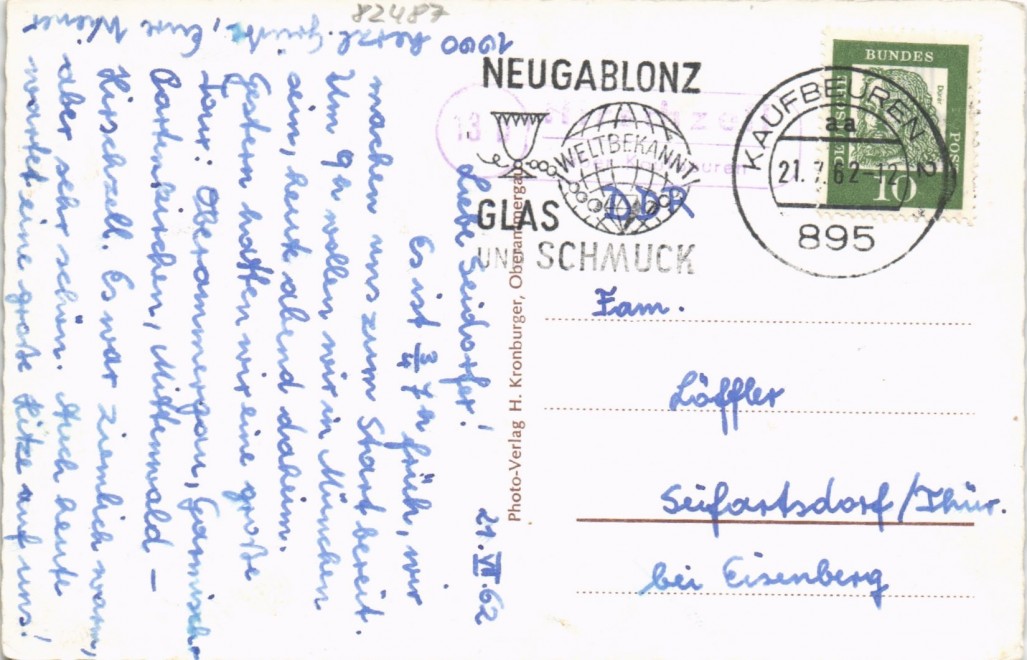 82487
NEUGABLONZ
WELTBEKANNT
GLAS
UND SCHMUCK
KAUFBEUREN 2
aa
21.7.62-12
895
BUNDES
POST
10
Dürer
DDR
Fam.
Löffler
Seifartsdorf/Thür.
bei Eisenberg
Photo-Verlag H. Kronburger, Oberammergau
21.VII.62
Liebe Seidorfer!
Es ist 3/4 7 h früh, wir
machen uns zum Start bereit.
Um 9h wollen wir in München
sein, heute abend daheim.
Gestern hatten wir eine große
Tour: Oberammergau, Garmisch-
Partenkirchen, Mittenwald –
Hirschzell. Es war ziemlich warm,
aber sehr schön. Auch heute
wartet eine große Hitze auf uns!
1000 herzl. Grüße, Eure Wiener